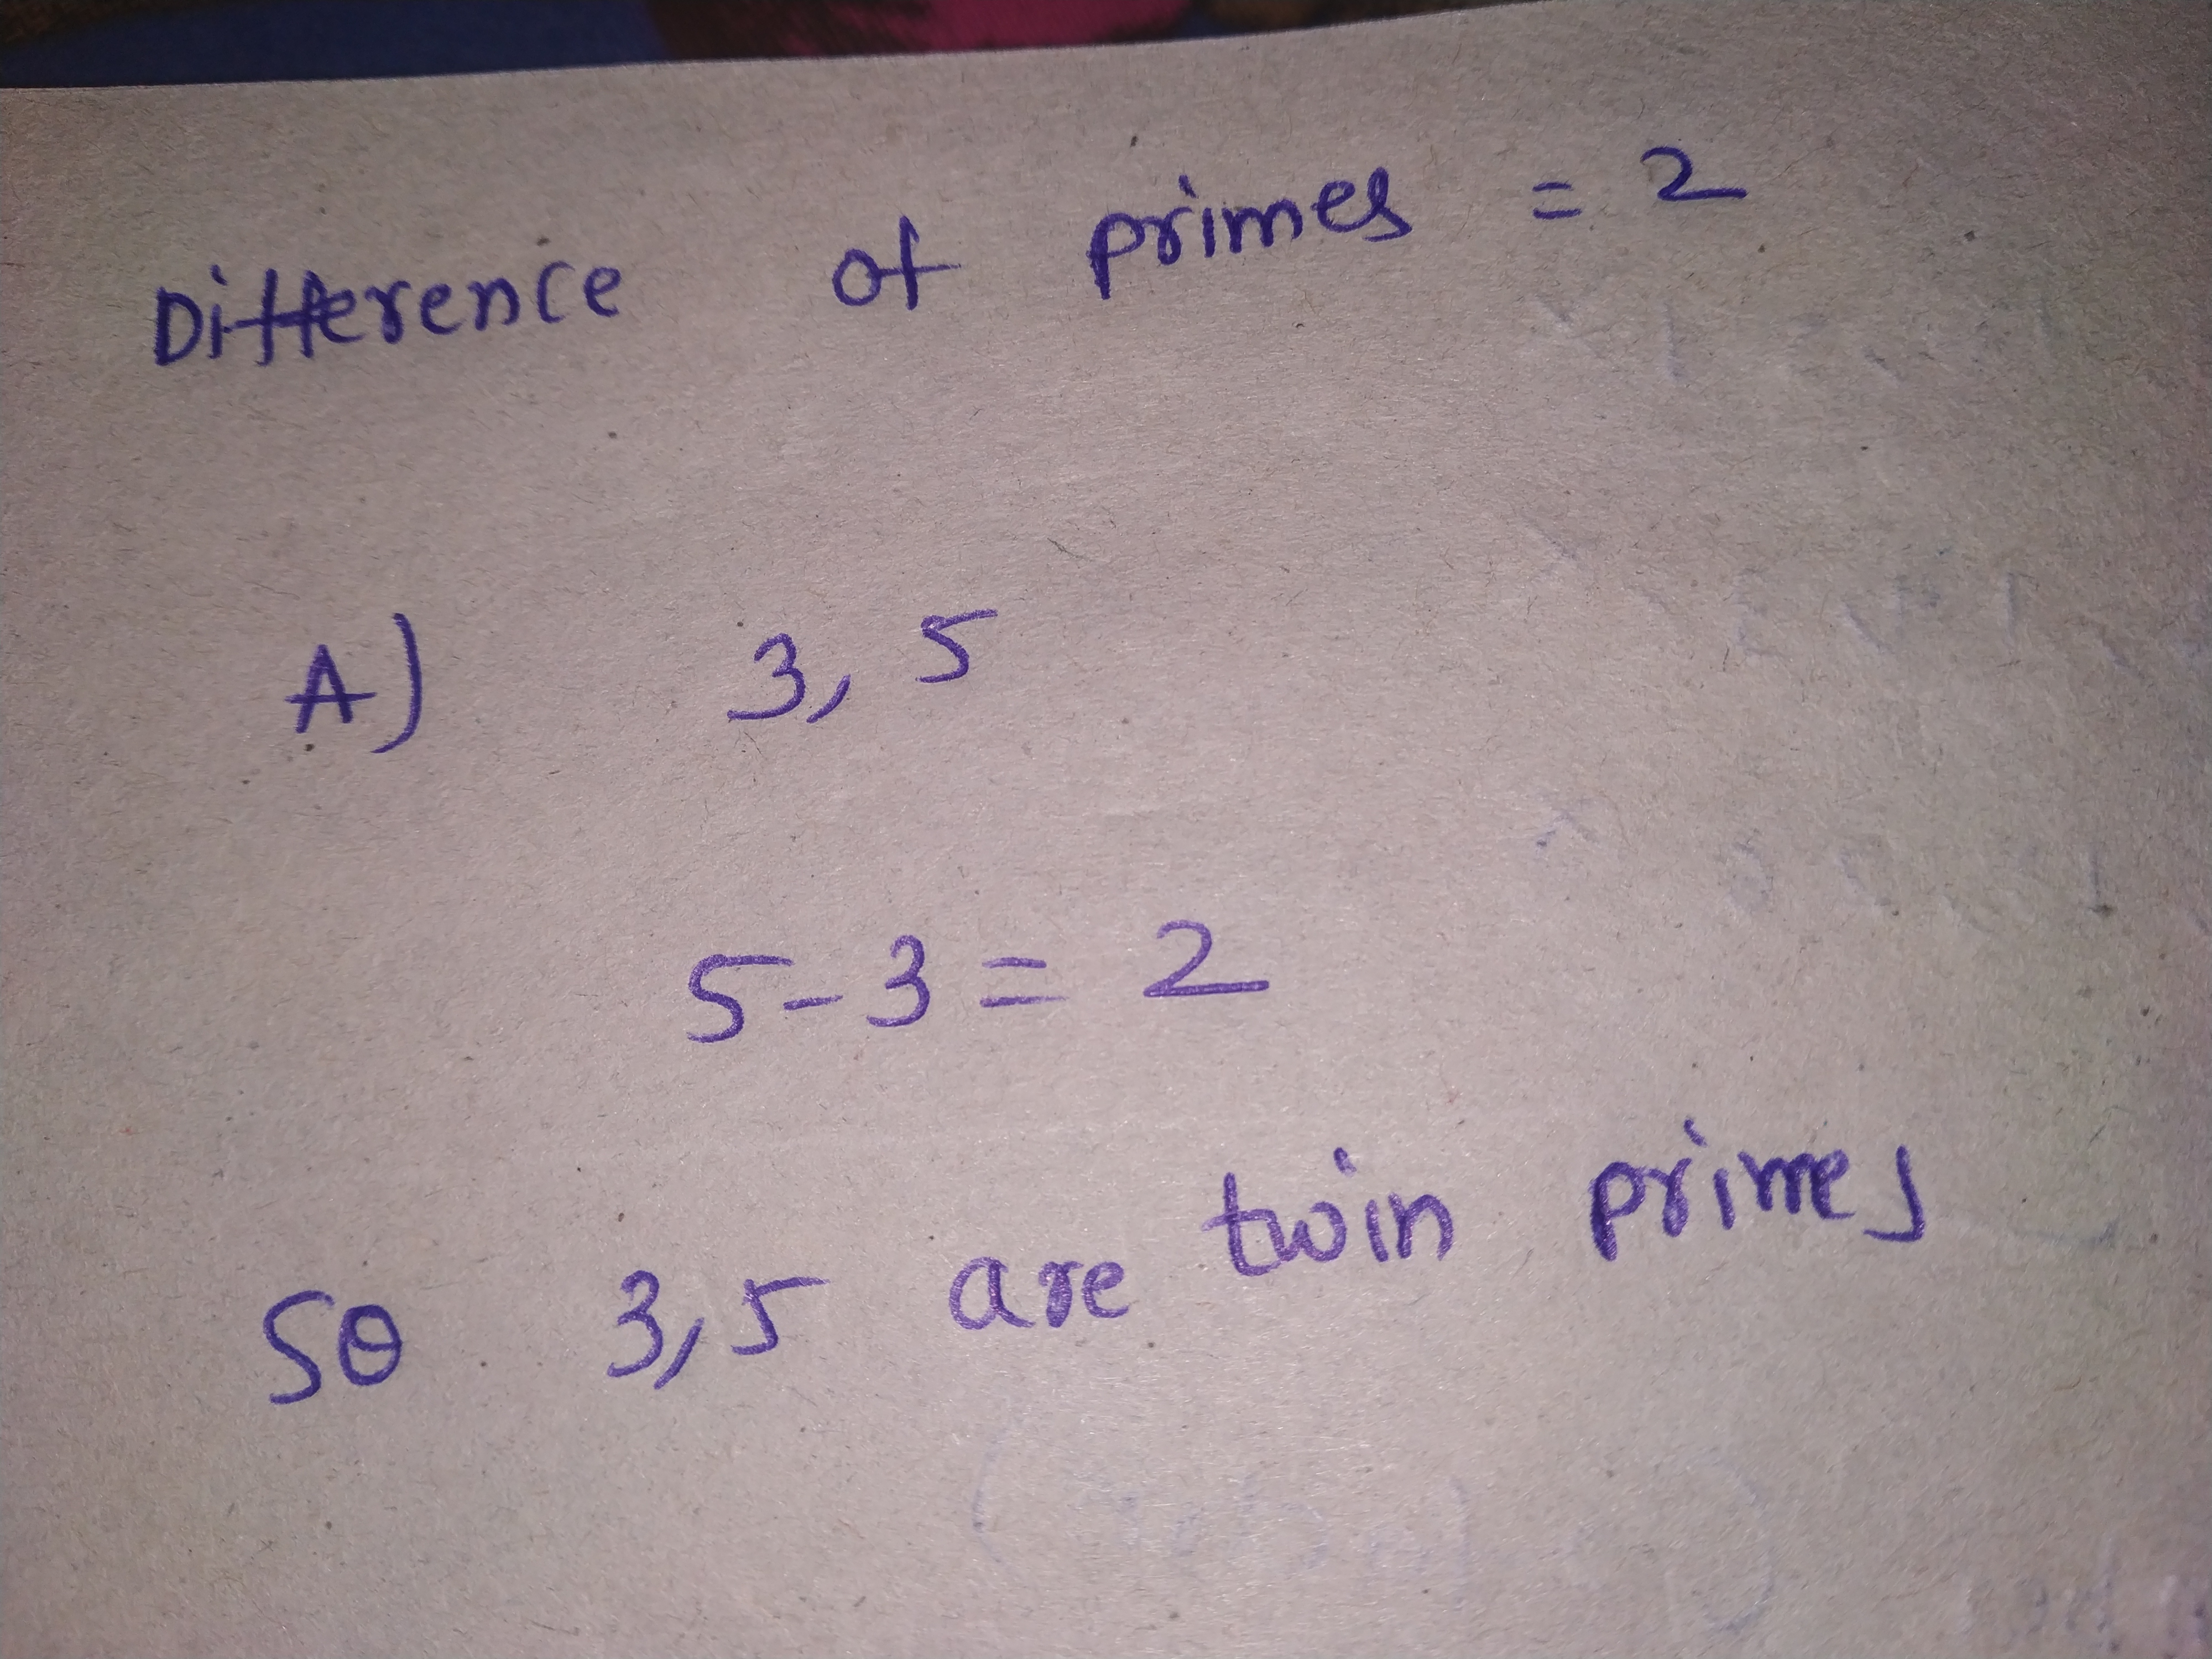 Difference of primes = 2
A) 3, 5
5-3 = 2
So 3,5 are twin primes